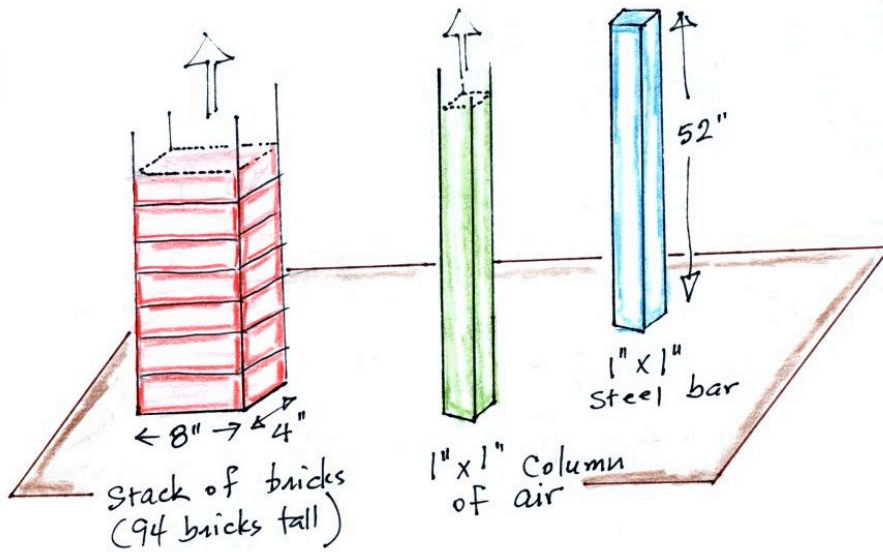 8"
4"
Stack of bricks
(94 bricks tall)
1" x 1" Column
of air
52"
1" x 1"
Steel bar